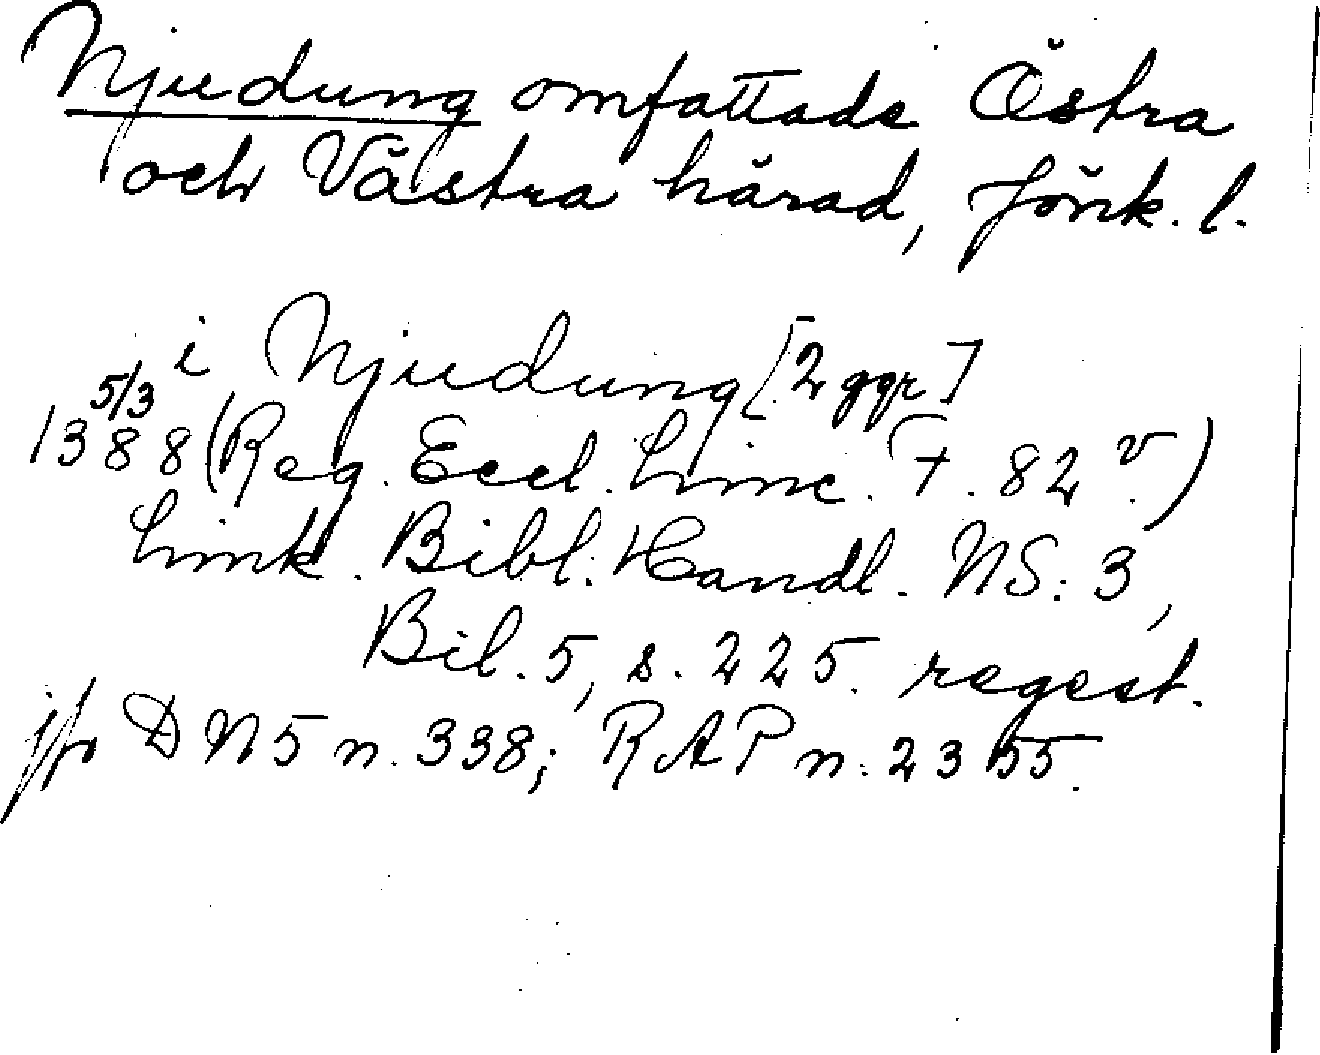 Njudung omfattade Östra
och Västra härad, Jönk. l.
i Njudung [2 ggr]
5/3
1388 (Reg. Eccl. Linc. f. 82 v.)
Link. Bibl. Handl. NS: 3,
Bil. 5, s. 225. regest.
jfr DN 5 n. 338; RAP n. 2355.